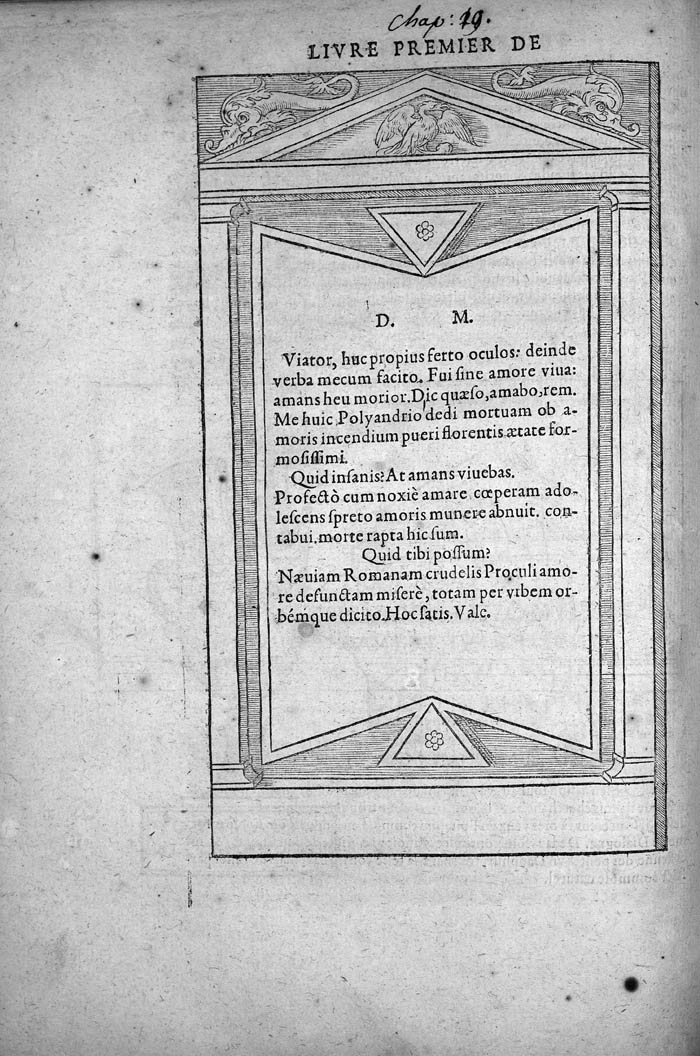 Chap: 19.
LIVRE PREMIER DE
D. M.
Viator, huc propius ferto oculos: deinde
verba mecum facito. Fui ſine amore viua:
amans heu morior. Dic quæſo, amabo, rem.
Me huic Polyandrio dedi mortuam ob a-
moris incendium pueri florentis ætate for-
moſiſſimi.
Quid inſanis? At amans viuebas.
Profectò cum noxiè amare cœperam ado-
leſcens ſpreto amoris munere abnuit. con-
tabui. morte rapta hic ſum.
Quid tibi poſſum?
Næuiam Romanam crudelis Proculi amo-
re defunctam miſerè, totam per vrbem or-
bémque dicito. Hoc ſatis. Vale.